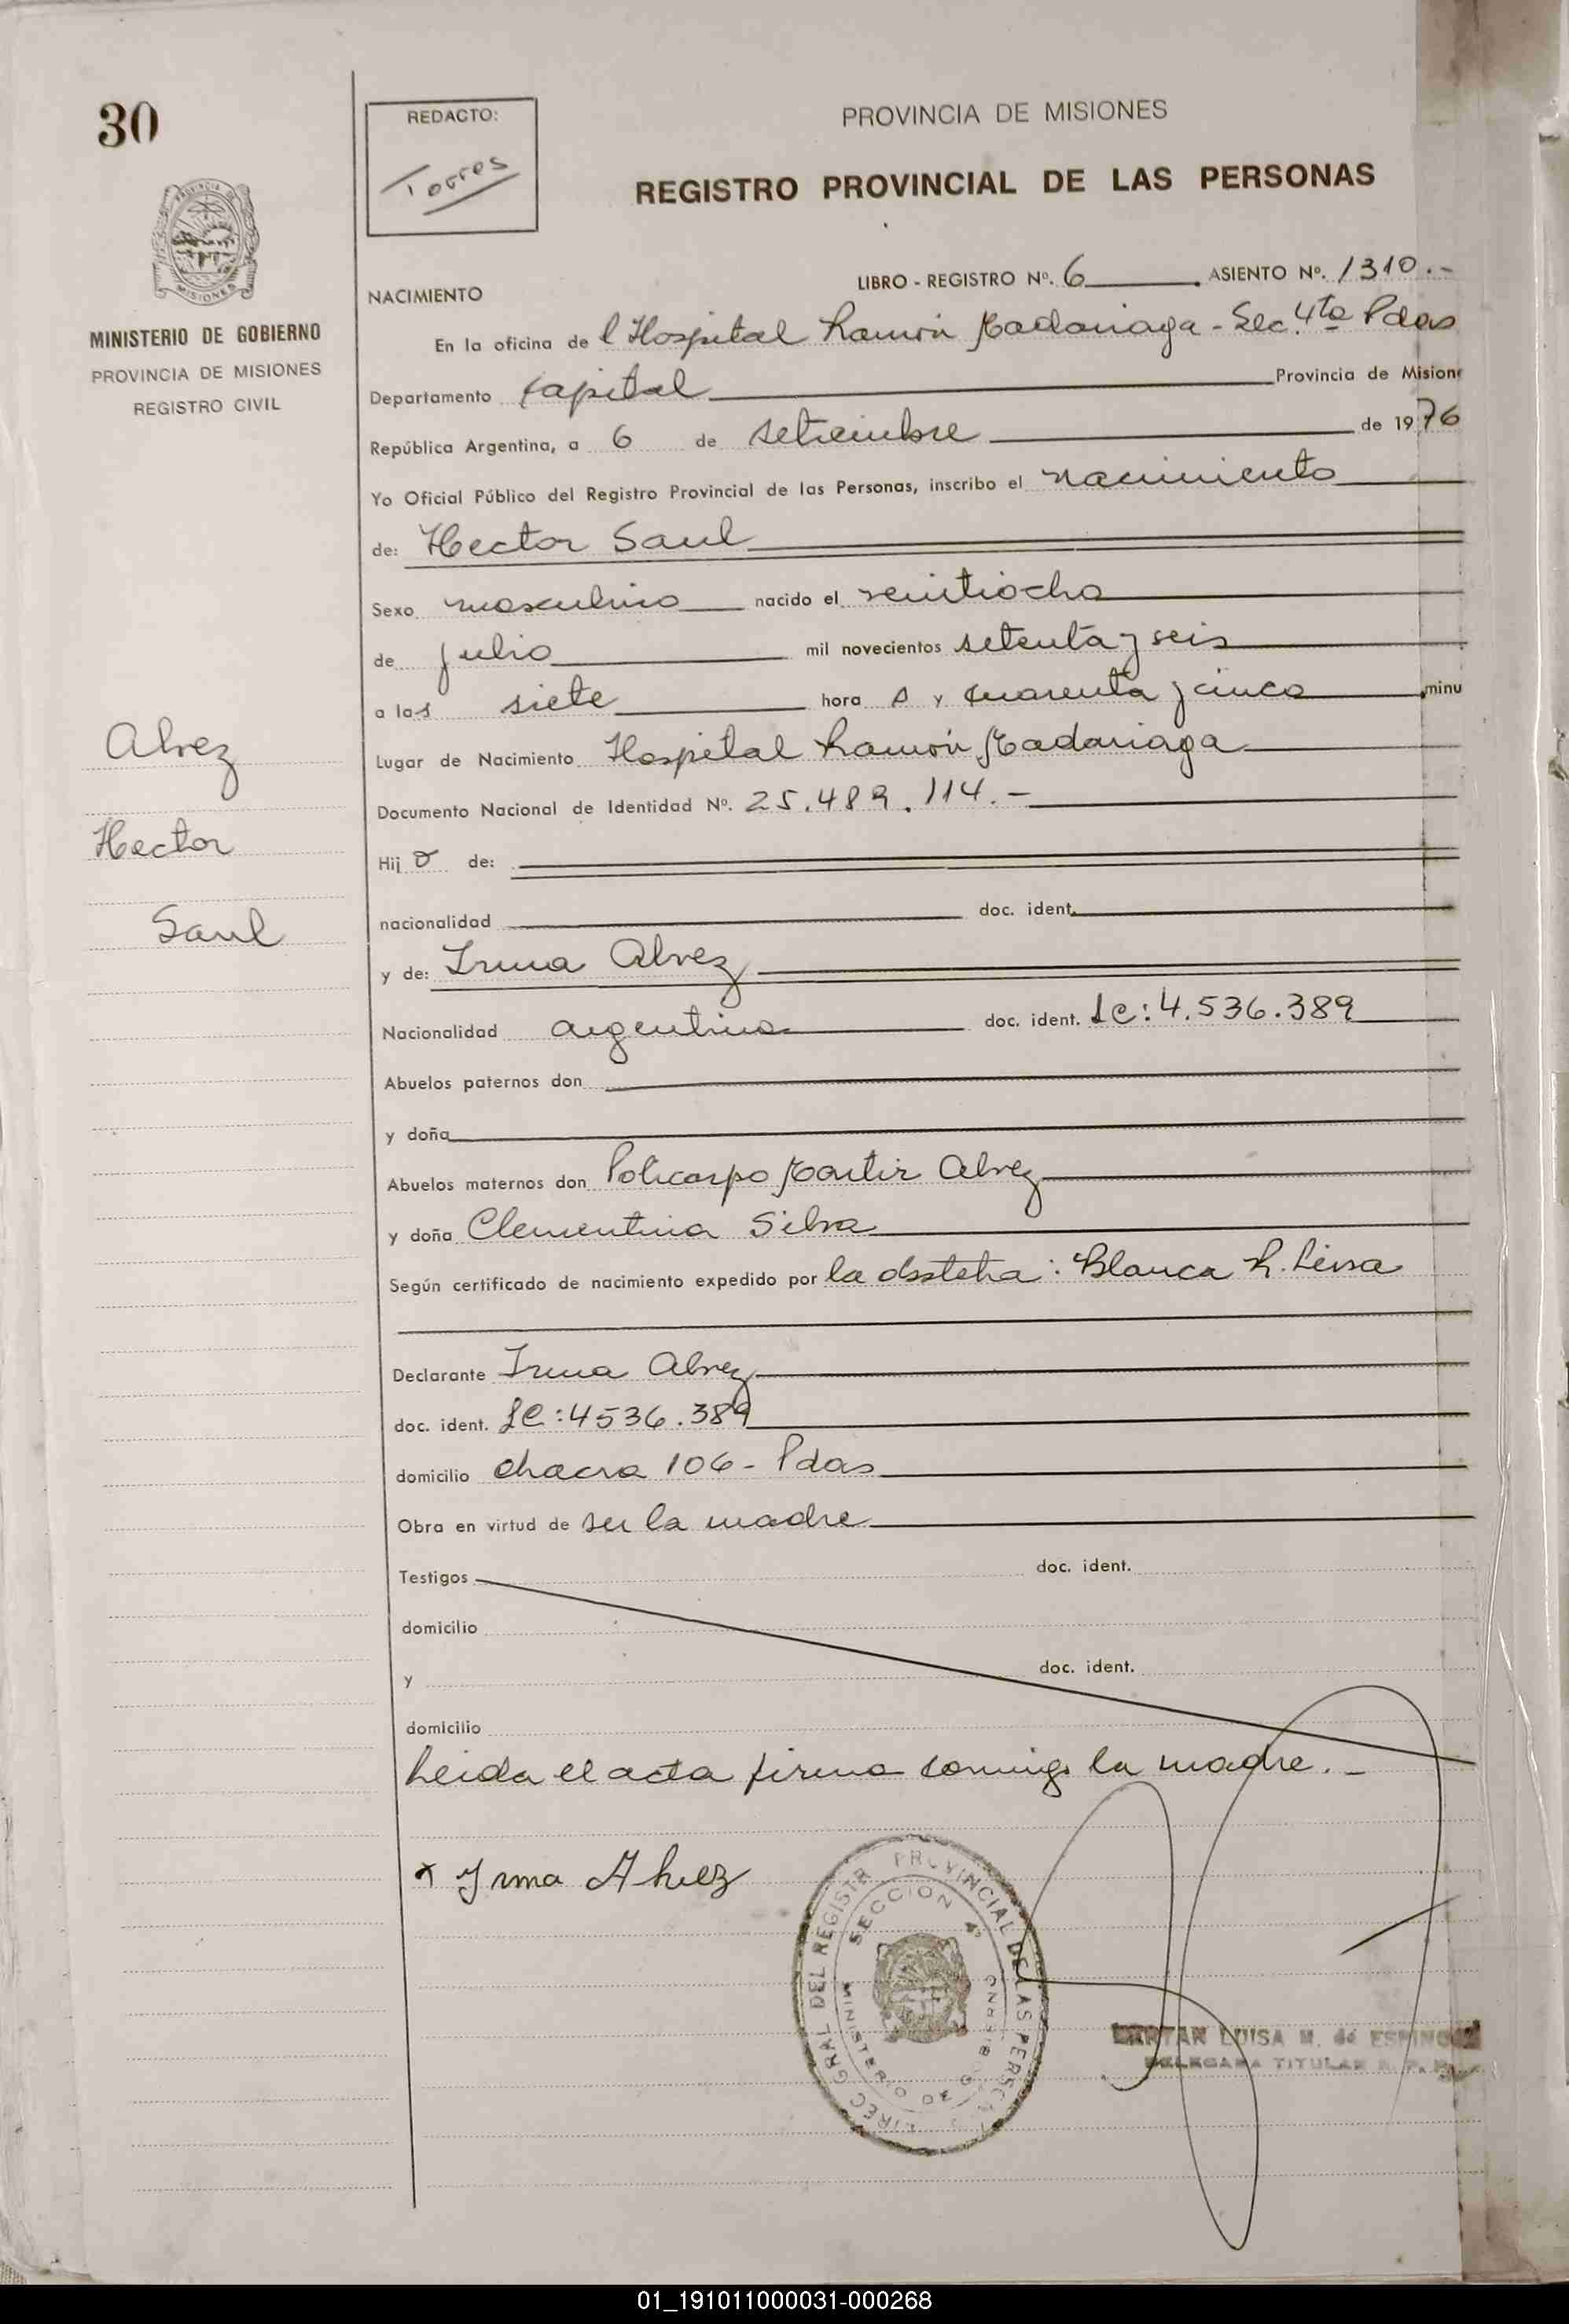 30
REDACTO:
Torres
PROVINCIA DE MISIONES
REGISTRO PROVINCIAL DE LAS PERSONAS
MISIONES
MINISTERIO DE GOBIERNO
PROVINCIA DE MISIONES
REGISTRO CIVIL
NACIMIENTO
LIBRO - REGISTRO Nº. 6 ASIENTO Nº. 1310.-
En la oficina de l Hospital Ramón Madariaga - Sec. 4ta Pdas
Departamento Capital Provincia de Misione
República Argentina, a 6 de setiembre de 1976
Yo Oficial Público del Registro Provincial de las Personas, inscribo el nacimiento
de: Hector Saul
Sexo masculino nacido el veintiocho
de julio mil novecientos setenta y seis
a las siete hora s y cuarenta y cinco minu
Lugar de Nacimiento Hospital Ramón Madariaga
Documento Nacional de Identidad Nº. 25.489.114.-
Hij o de:
nacionalidad doc. ident.
y de: Irma Alvez
Nacionalidad argentina doc. ident. LC: 4.536.389
Abuelos paternos don
y doña
Abuelos maternos don Policarpo Martir Alvez
y doña Clementina Silva
Según certificado de nacimiento expedido por la obstetra: Blanca R. Leiva
Declarante Irma Alvez
doc. ident. LC: 4536.389
domicilio chacra 106 - Pdas
Obra en virtud de ser la madre
Testigos doc. ident.
domicilio
y doc. ident.
domicilio
Leida el acta firma conmigo la madre.-
Alvez
Hector
Saul
x Irma Alvez
DIREC GRAL DEL REGISTR PROVINCIAL DE LAS PERSON
SECCION 4ª
MINISTERIO DE GOBIERNO
LUISA M. de
DELEGADA TITULAR
01_191011000031-000268